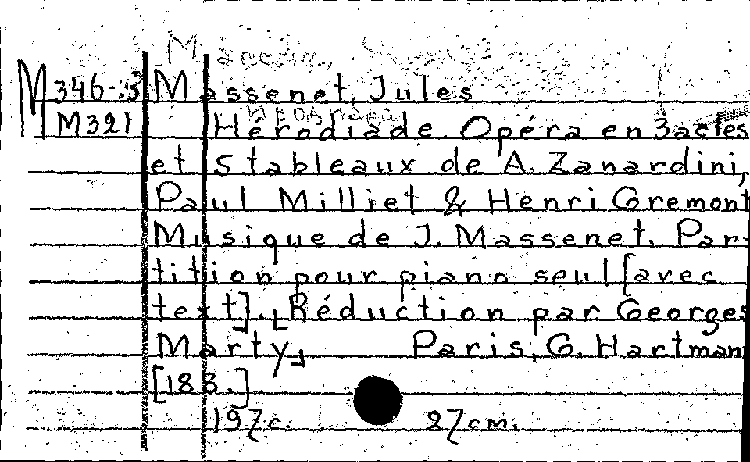 M346.3 Massenet, Jules
M321 Hérodiade. Opéra en 3 actes
et 5 tableaux de A. Zanardini,
Paul Milliet & Henri Gremont
Musique de J. Massenet. Par-
tition pour piano seul [avec
text]. ⌊Réduction par Georges
Marty⌋ Paris, G. Hartman
[188.]
197 c. 27 cm.